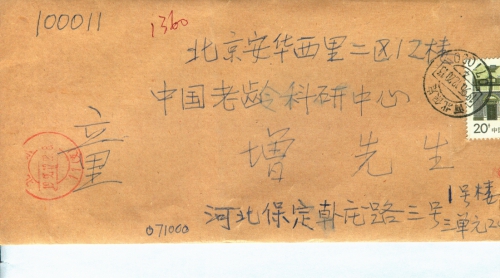 100011
1360
北京安华西里二区12楼
中国老龄科研中心
童增先生
河北保定韩庄路三号
1号楼
三单元2
071000
20分